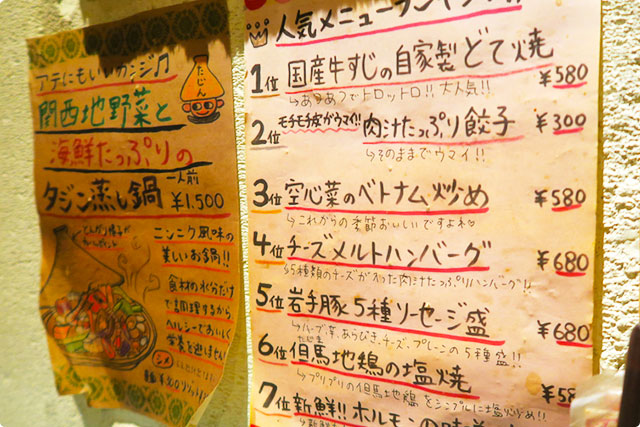 アテにもいいカンジ♪
たじん
関西地野菜と
海鮮たっぷりの
タジン蒸し鍋
一人前
¥1.500
ニンニク風味の
美しいお鍋!!
食材の水分だけ
で調理するから
ヘルシーでおいしく
栄養を逃さない
シメ
人気メニューランキング!!
1位 国産牛すじの自家製どて焼 ¥580
↳あるあつでトロットロ!!大人気!!
2位 モチモチ皮がウマイ!! 肉汁たっぷり餃子 ¥300
↳そのままでウマイ!!
3位 空心菜のベトナム炒め ¥580
↳これからの季節おいしいですよね
4位 チーズメルトハンバーグ ¥680
↳5種類のチーズが入った肉汁たっぷりハンバーグ!!
5位 岩手豚5種ソーセージ盛 ¥680
↳ハーブ、芋、あらびき、チーズ、プレーンの5種盛!!
6位 但馬地鶏の塩焼 ¥58
たじま
↳プリプリの但馬地鶏をシンプルに塩炒め!!
7位 新鮮!!ホルモンの味
↳新鮮